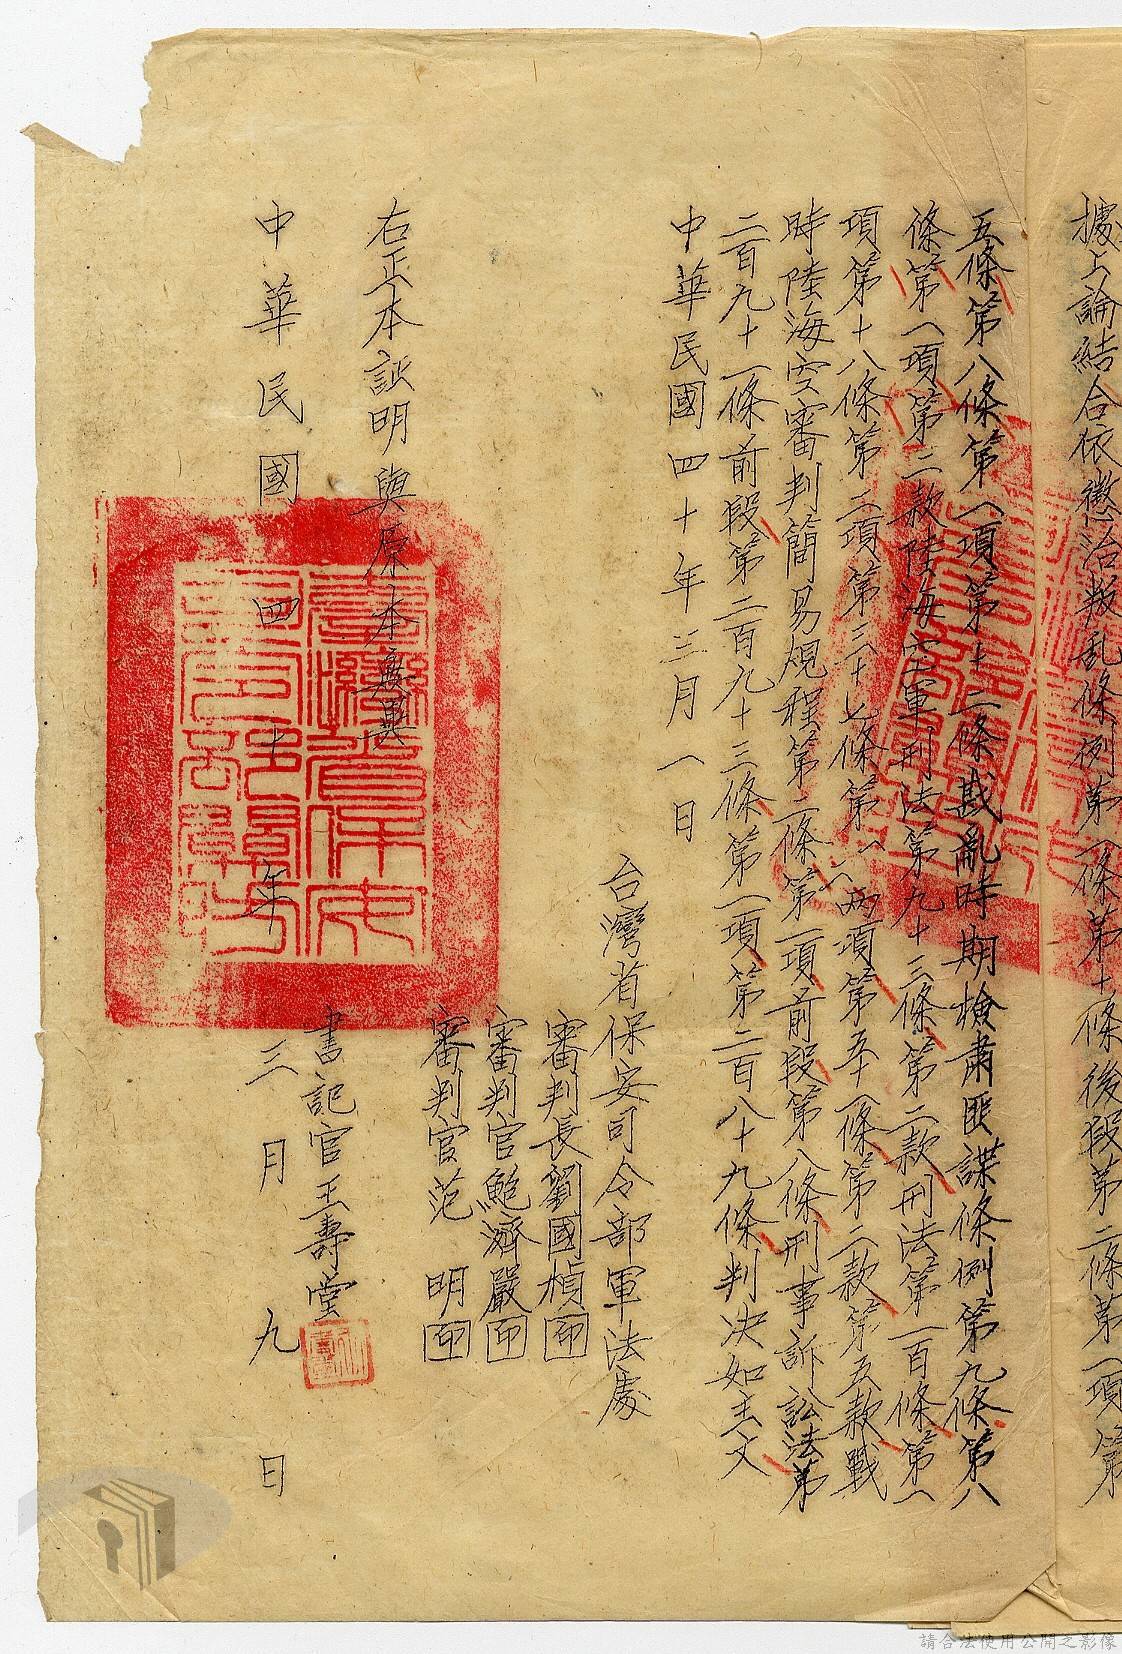 據上論結合依懲治叛乱條例第一條第十條後段第二條第一項第
五條第八條第一項第十二條戡亂時期檢肅匪諜條例第九條第八
條第一項第二款陸海空軍刑法第九十三條第二款刑法第一百條第一
項第十八條第二項第三十七條第一八兩項第五十一條第二款第五款戰
時陸海空審判簡易規程第二條第一項前段第八條刑事訴訟法第
二百九十一條前段第二百九十三條第一項第二百八十九條判決如主文
中華民國四十年三月一日
台灣省保安司令部軍法處
審判長劉國楨印
審判官鮑濟嚴印
審判官范明印
右正本証明與原本無異
書記官王壽堂
中華民國四十年三月九日
臺灣省保安司令部軍法
請合法使用公開之影像